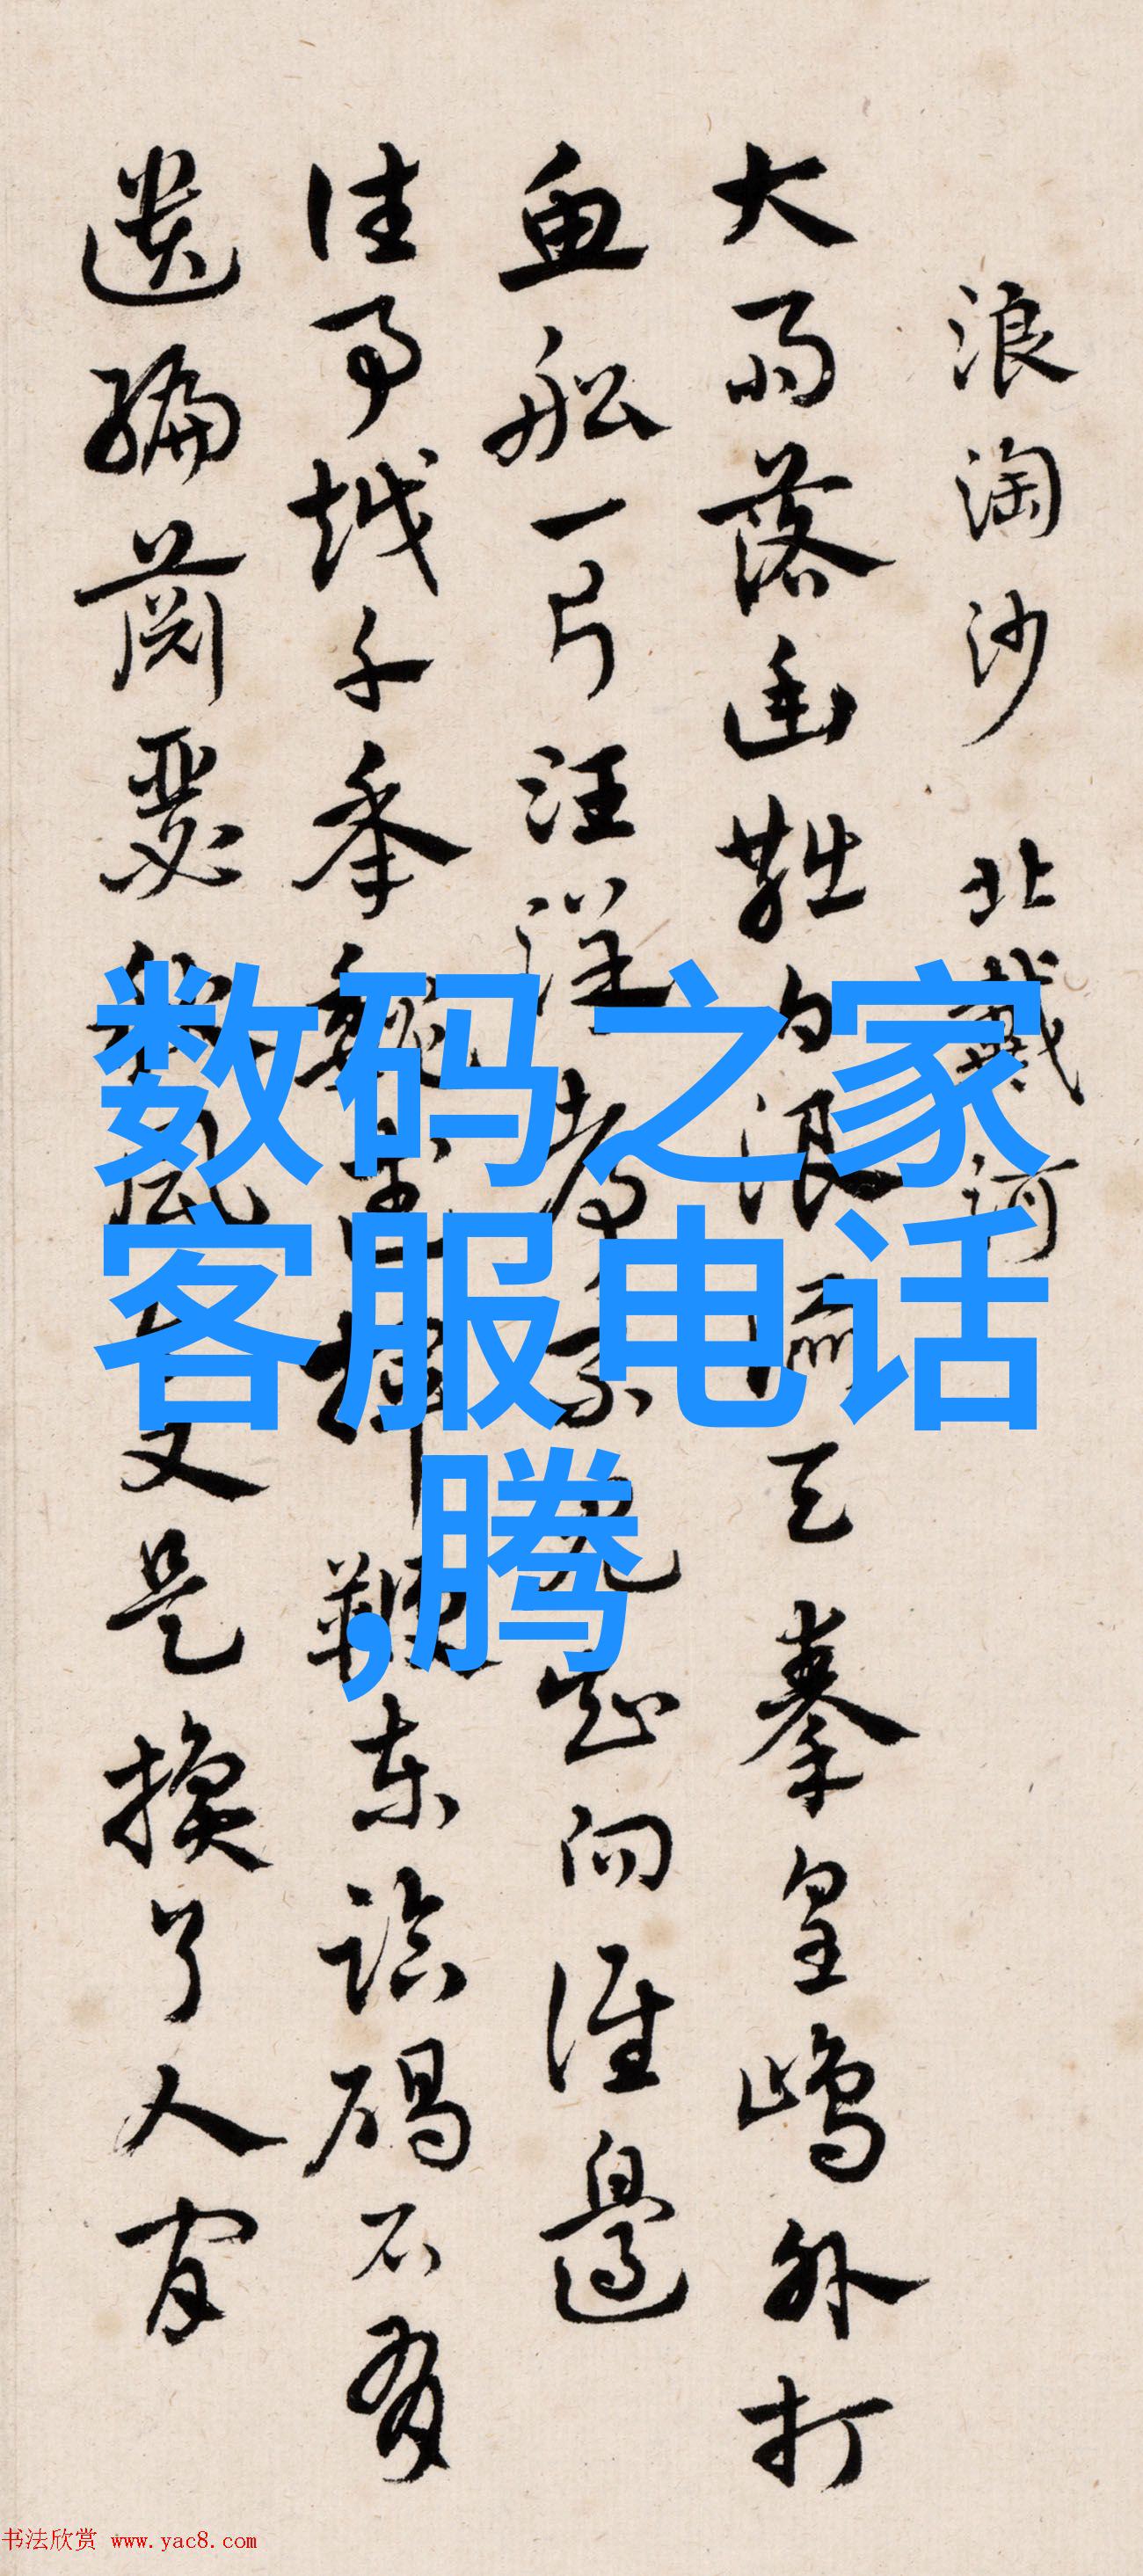 浪淘沙 北戴河
大雨落幽燕白浪滔天秦皇島外打
魚船一片汪洋都不見知向誰邊
往事越千年魏武揮鞭東臨碣石有
遺編蕭瑟秋風又是換了人間
数码之家
客服电话
,腾
书法欣赏 www.yac8.com